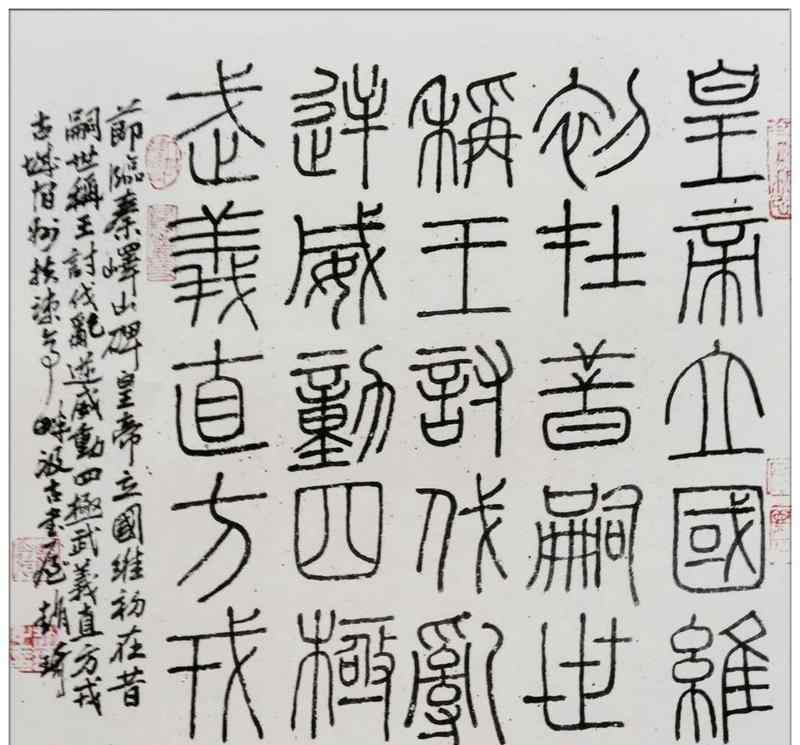 皇帝立國維
初在昔嗣世
稱王討伐亂
逆威動四極
武義直方戎
節臨秦嶧山碑皇帝立國維初在昔
嗣世稱王討伐亂逆威動四極武義直方戎
古城宿州扶疎亭畔汲古書屋趙